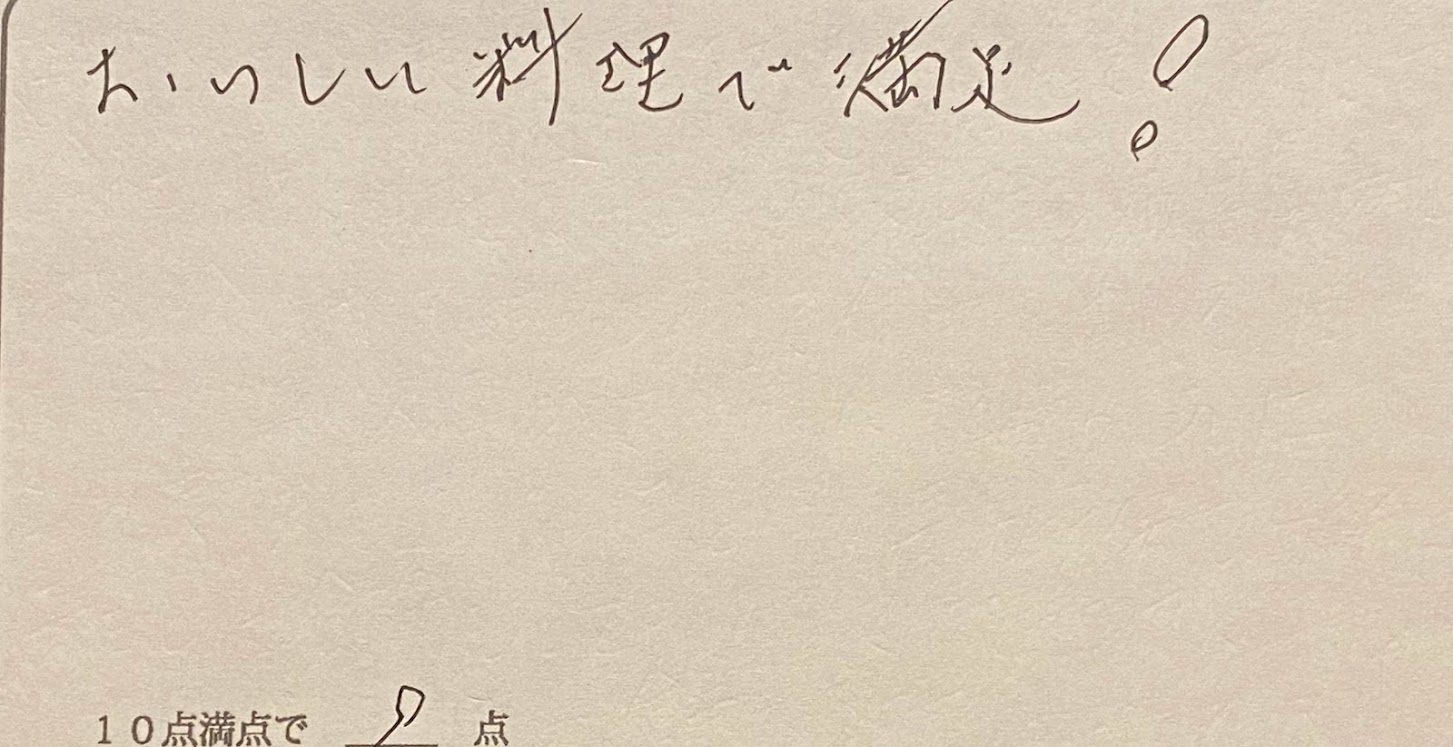 おいしい料理で満足!
10点満点で 9 点